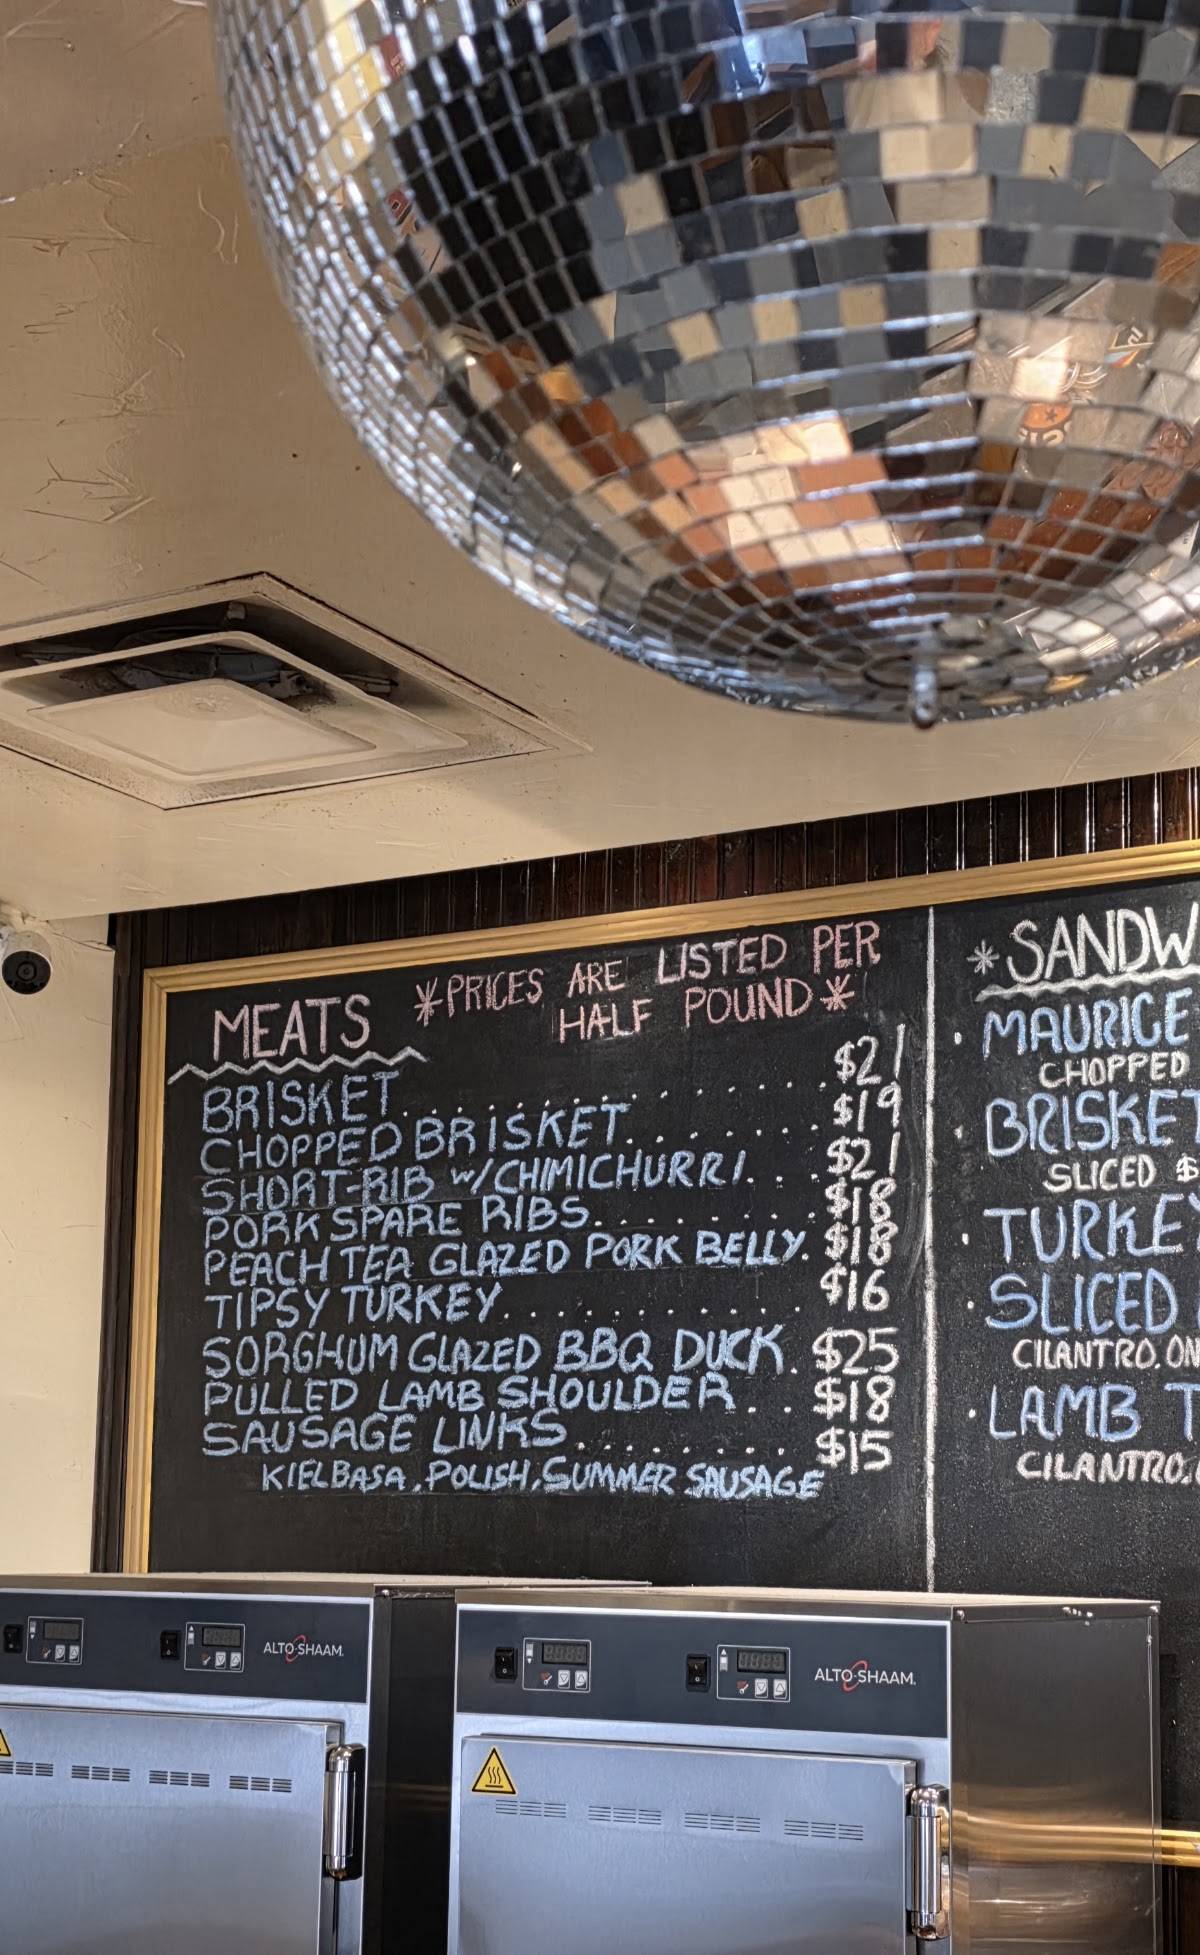 MEATS
*PRICES ARE LISTED PER
HALF POUND*
BRISKET............$21
CHOPPED BRISKET........$19
SHORT-RIB W/CHIMICHURRI...$21
PORK SPARE RIBS.........$18
PEACH TEA GLAZED PORK BELLY.$18
TIPSY TURKEY............$16
SORGHUM GLAZED BBQ DUCK.$25
PULLED LAMB SHOULDER...$18
SAUSAGE LINKS........$15
KIELBASA, POLISH, SUMMER SAUSAGE
*SANDW
• MAURICE
CHOPPED
• BRISKET
SLICED $
• TURKEY
• SLICED
CILANTRO, ON
• LAMB T
CILANTRO,
ALTO-SHAAM.
ALTO-SHAAM.